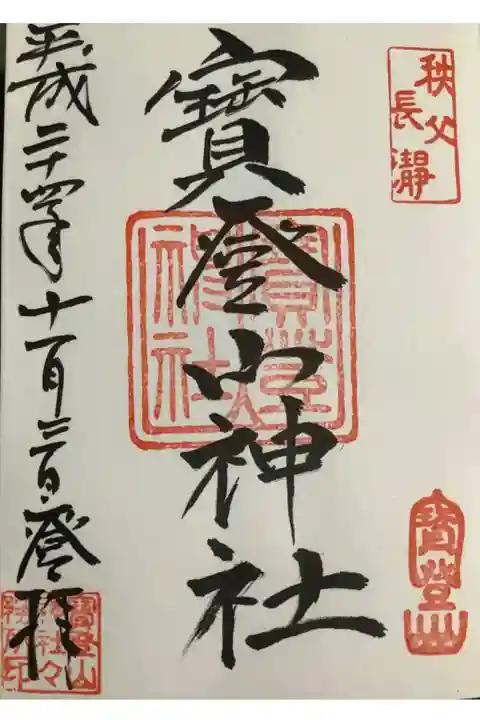 秩父
長瀞
寶登山神社
寶登山神社
寶登山
平成二十四年十一月三日登拝
寶登山
神社々
務所印